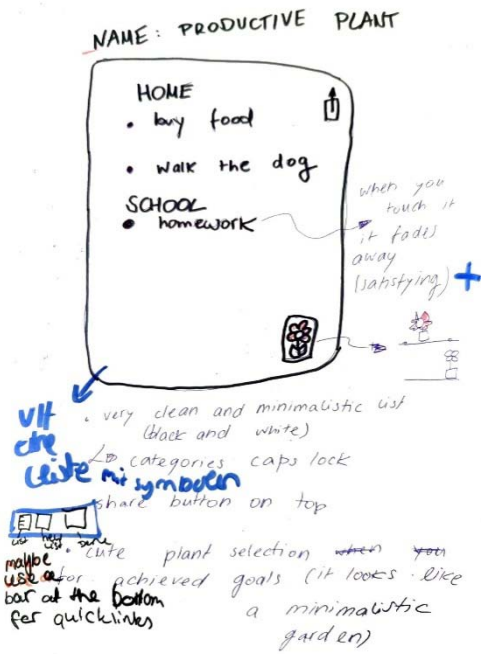 NAME: PRODUCTIVE PLANT
HOME
• buy food
• walk the dog
SCHOOL
• homework
when you
touch it
it fades
away
(satisfying) +
. very clean and minimalistic list
(black and white)
categories caps lock
share button on top
. cute plant selection when you
for achieved goals (it looks like
a minimalistic
garden)
vlt
eine
Leiste mit symbolen
list new list
maybe
use a
bar at the bottom
for quicklinks